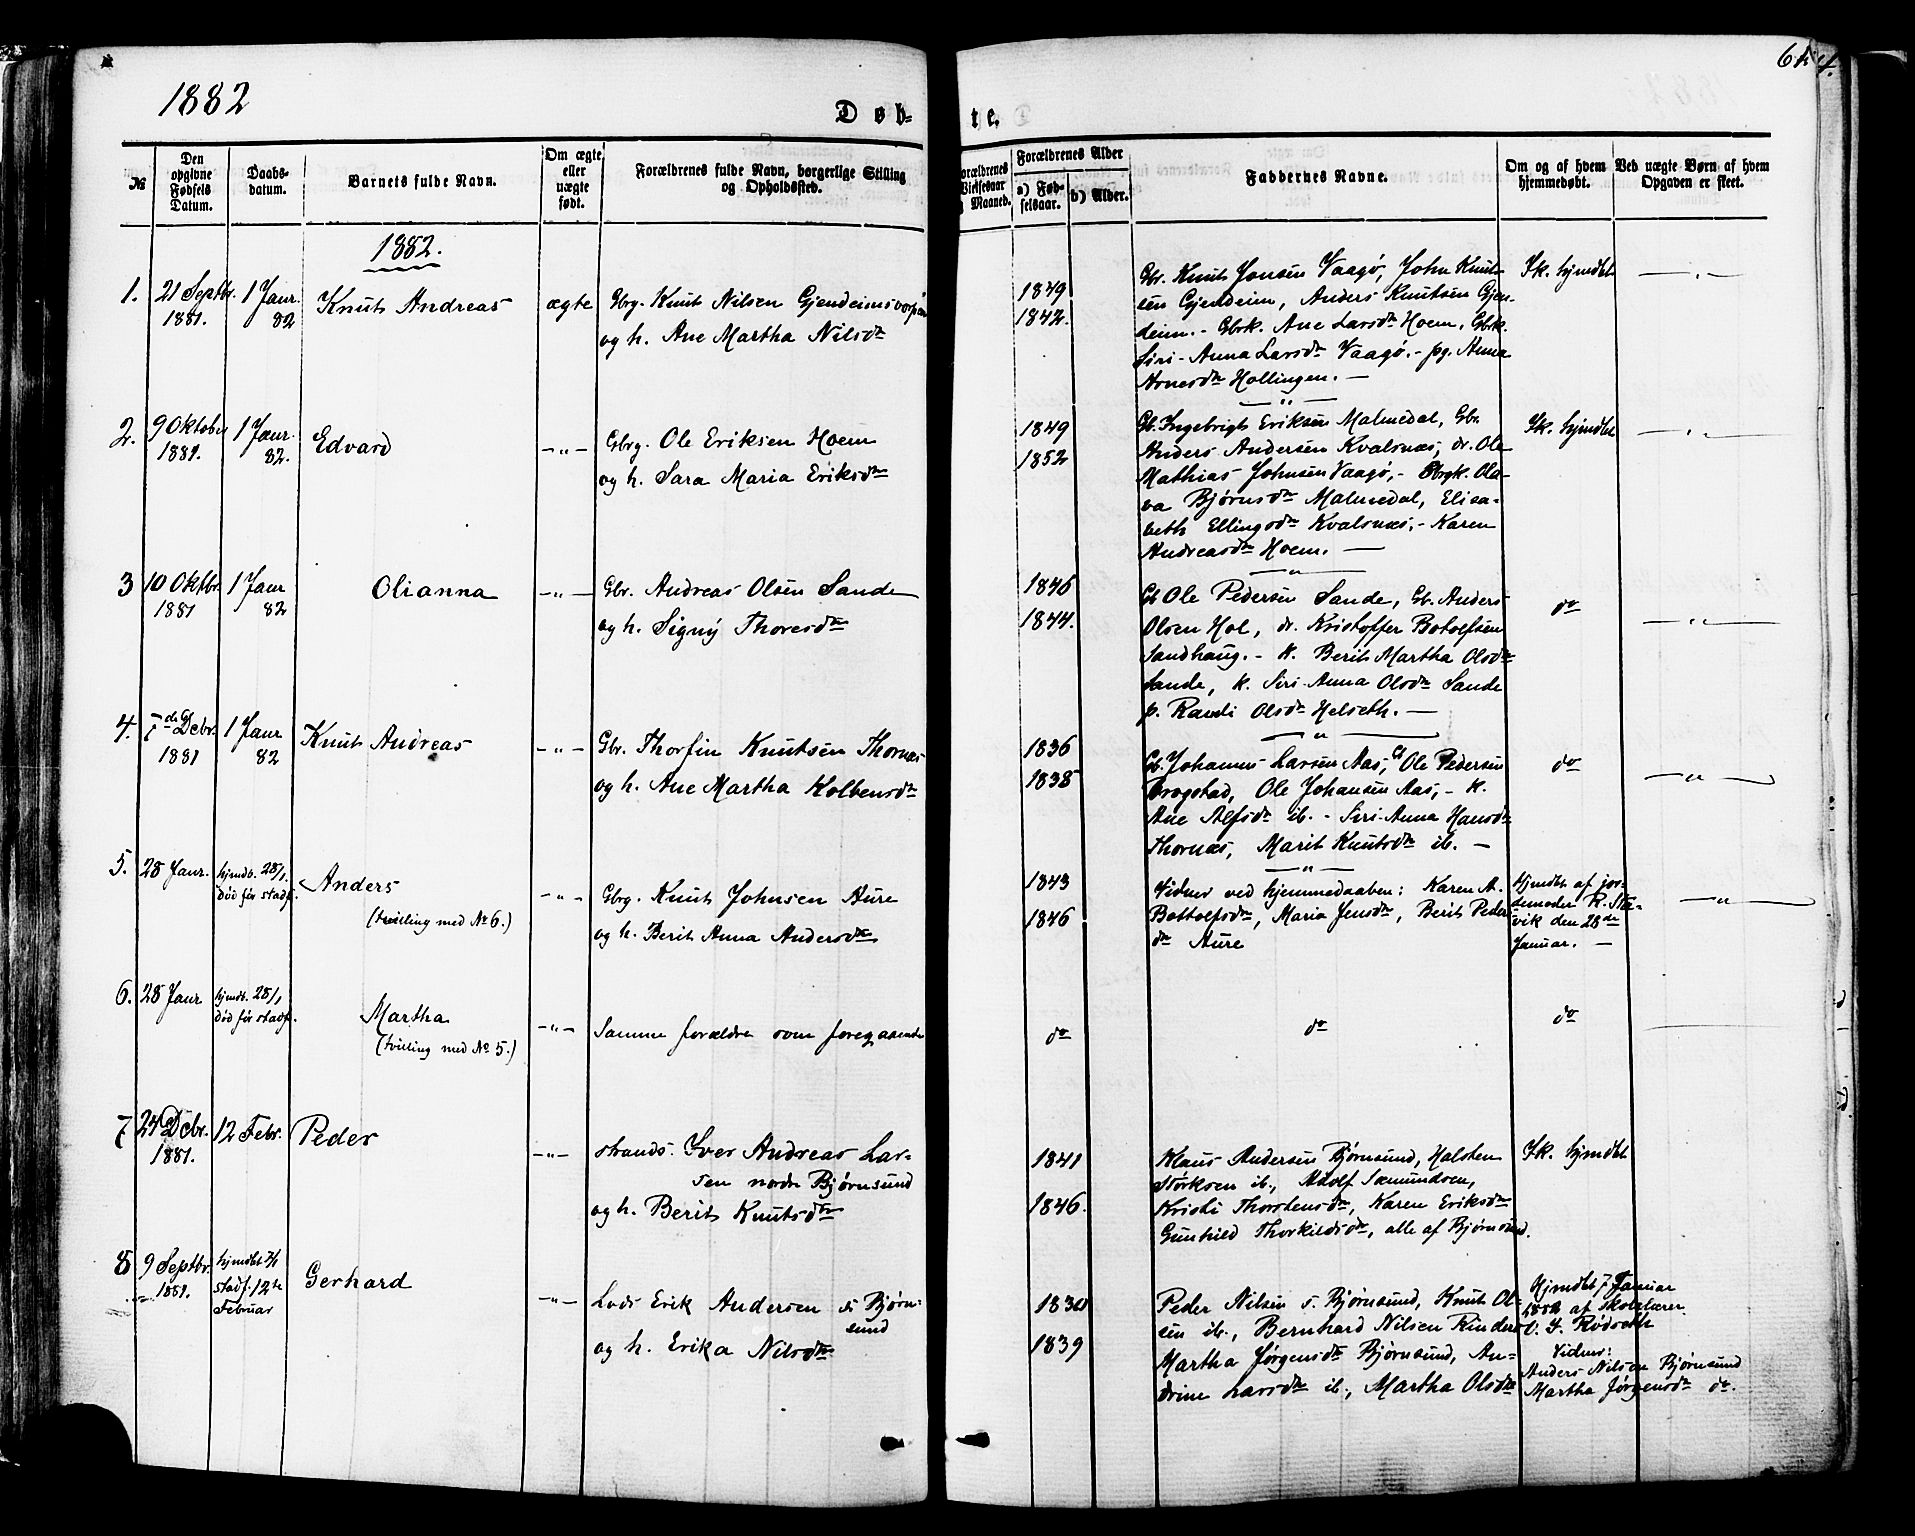 1882
Døb-
te.
64.
№
Den opgivne Fødsels Datum.
Daabs-datum.
Barnets fulde Navn.
Om ægte eller uægte født.
Forældrenes fulde Navn, borgerlige Stilling og Opholdssted.
Forældrenes Vielsesaar og Maaned.
Forældrenes Alder
a) Fød-selsaar.
b) Alder.
Faddernes Navne.
Om og af hvem hjemmedøbt.
Ved uægte Børn af hvem Opgaven er skeet.
1882.
1. 21 Septbr. 1 Janr. Knut Andreas ægte Gbrg. Knut Nilsen Gjendeimsvorpen
1881. 82 og h. Ane Martha Nilsdtr
1849
1842.
Gbr. Knut Jonsen Vaagø, John Knut-
sen Gjendeim, Anders Knutsen Gjen-
deim. - Gbrk. Ane Larsdtr Hoem, Gbrk.
Siri-Anna Larsdtr Vaagø. - pg. Anna
Arnesdtr Hollingen. —
Ik. hjmdbt
2. 9 Oktober 1 Janr. Edvard -„- Gbrg. Ole Eriksen Hoem
1881. 82. og h. Sara Maria Eriksdtr
1849
1852
Gb. Ingebrigt Eriksen Malmedal, Gbr.
Anders Andersen Kvalsnæs, dr. Ole
Mathias Johnsen Vaagø, - Gbrgk. Ola-
va Bjørnsdtr Malmedal, Elisa-
beth Ellingsdtr Kvalsnæs, - Karen
Andreasdtr Hoem. —
Ik. hjmdbt
3 10 Oktbr. 1 Janr Olianna -„- Gbr. Andreas Olsen Sande
1881 82 og h. Signy Thoresdtr
1846
1844.
Gb Ole Pedersen Sande, Gb. Anders
Olsen Hol, dr. Kristoffer Botolfsen
Sandhaug. - K. Berit Martha Olsdtr
Sande, k. Siri-Anna Olsdtr Sande
p. Randi Olsdtr Helseth. —
do
4. 7de Decbr. 1 Janr Knut Andreas -„- Gbr. Thorfin Knutsen Thornæs
1881 82 og h. Ane Martha Kolbensdtr
1836
1838
Gb. Johannes Larsen Aas, Gb Ole Pedersen
Drogstad, Ole Johansen Aas, - K.
Ane Alfsdtr ib. - Siri-Anna Hansdtr
Thornæs, Marit Knutsdtr ib. —
do
5. 28 Janr. hjmdb. 28/1. Anders -„- Gbrg. Knut Johnsen Aure
død før stadf. (tvilling med № 6.) og h. Berit Anna Andersdtr
1843
1846
Vidner ved hjemmedaaben: Karen A.
Bottolfsdtr, Maria Jensdtr, Berit Peders-
dtr Aure
Hjmdbt af jor-
demoder R. Sta-
vik den 28de
Januar. —
6. 28 Janr hjmdb. 28/1 Martha -„- Samme forældre som foregaaende
død før stadf. (tvilling med № 5.)
do do do
7 24 Decbr. 12 Febr. Peder -„- strands. Iver Andreas Lar-
1881. sen nordre Bjørnsund
og h. Berit Knutsdtr
1841
1846.
Klaus Andersen Bjørnsund, Halsten
Størksen ib., Adolf Sæmundsen,
Kristi Thorstensdtr, Karen Eriksdtr
Gunhild Thorkildsdtr, alle af Bjørnsund.
Ik. hjmdbt
8 9 Septbr. hjmdbt 7/1 Gerhard -„- Lods Erik Andersen s. Bjørn-
1881. stadf. 12te sund
Februar og h. Erika Nilsdtr
1839
Peder Nilsen s. Bjørnsund, Knut Ol-
sen ib., Bernhard Nilsen Rinden
Martha Jørgensdtr Bjørnsund, An-
drine Larsdtr ib., Martha Olsdtr
Hjmdbt 7 Januar
1882 af skolelærer
O. I. Rødseth
Vidner:
Anders Nilsen Bjørnsund
Martha Jørgensdtr do.